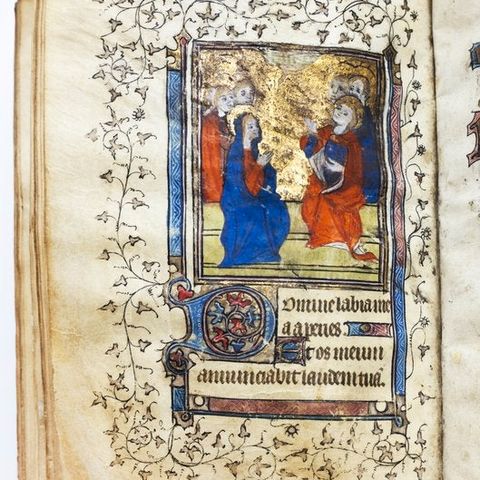 Domine labia me
a aperies
Et os meum
annunciabit laudem tuā.